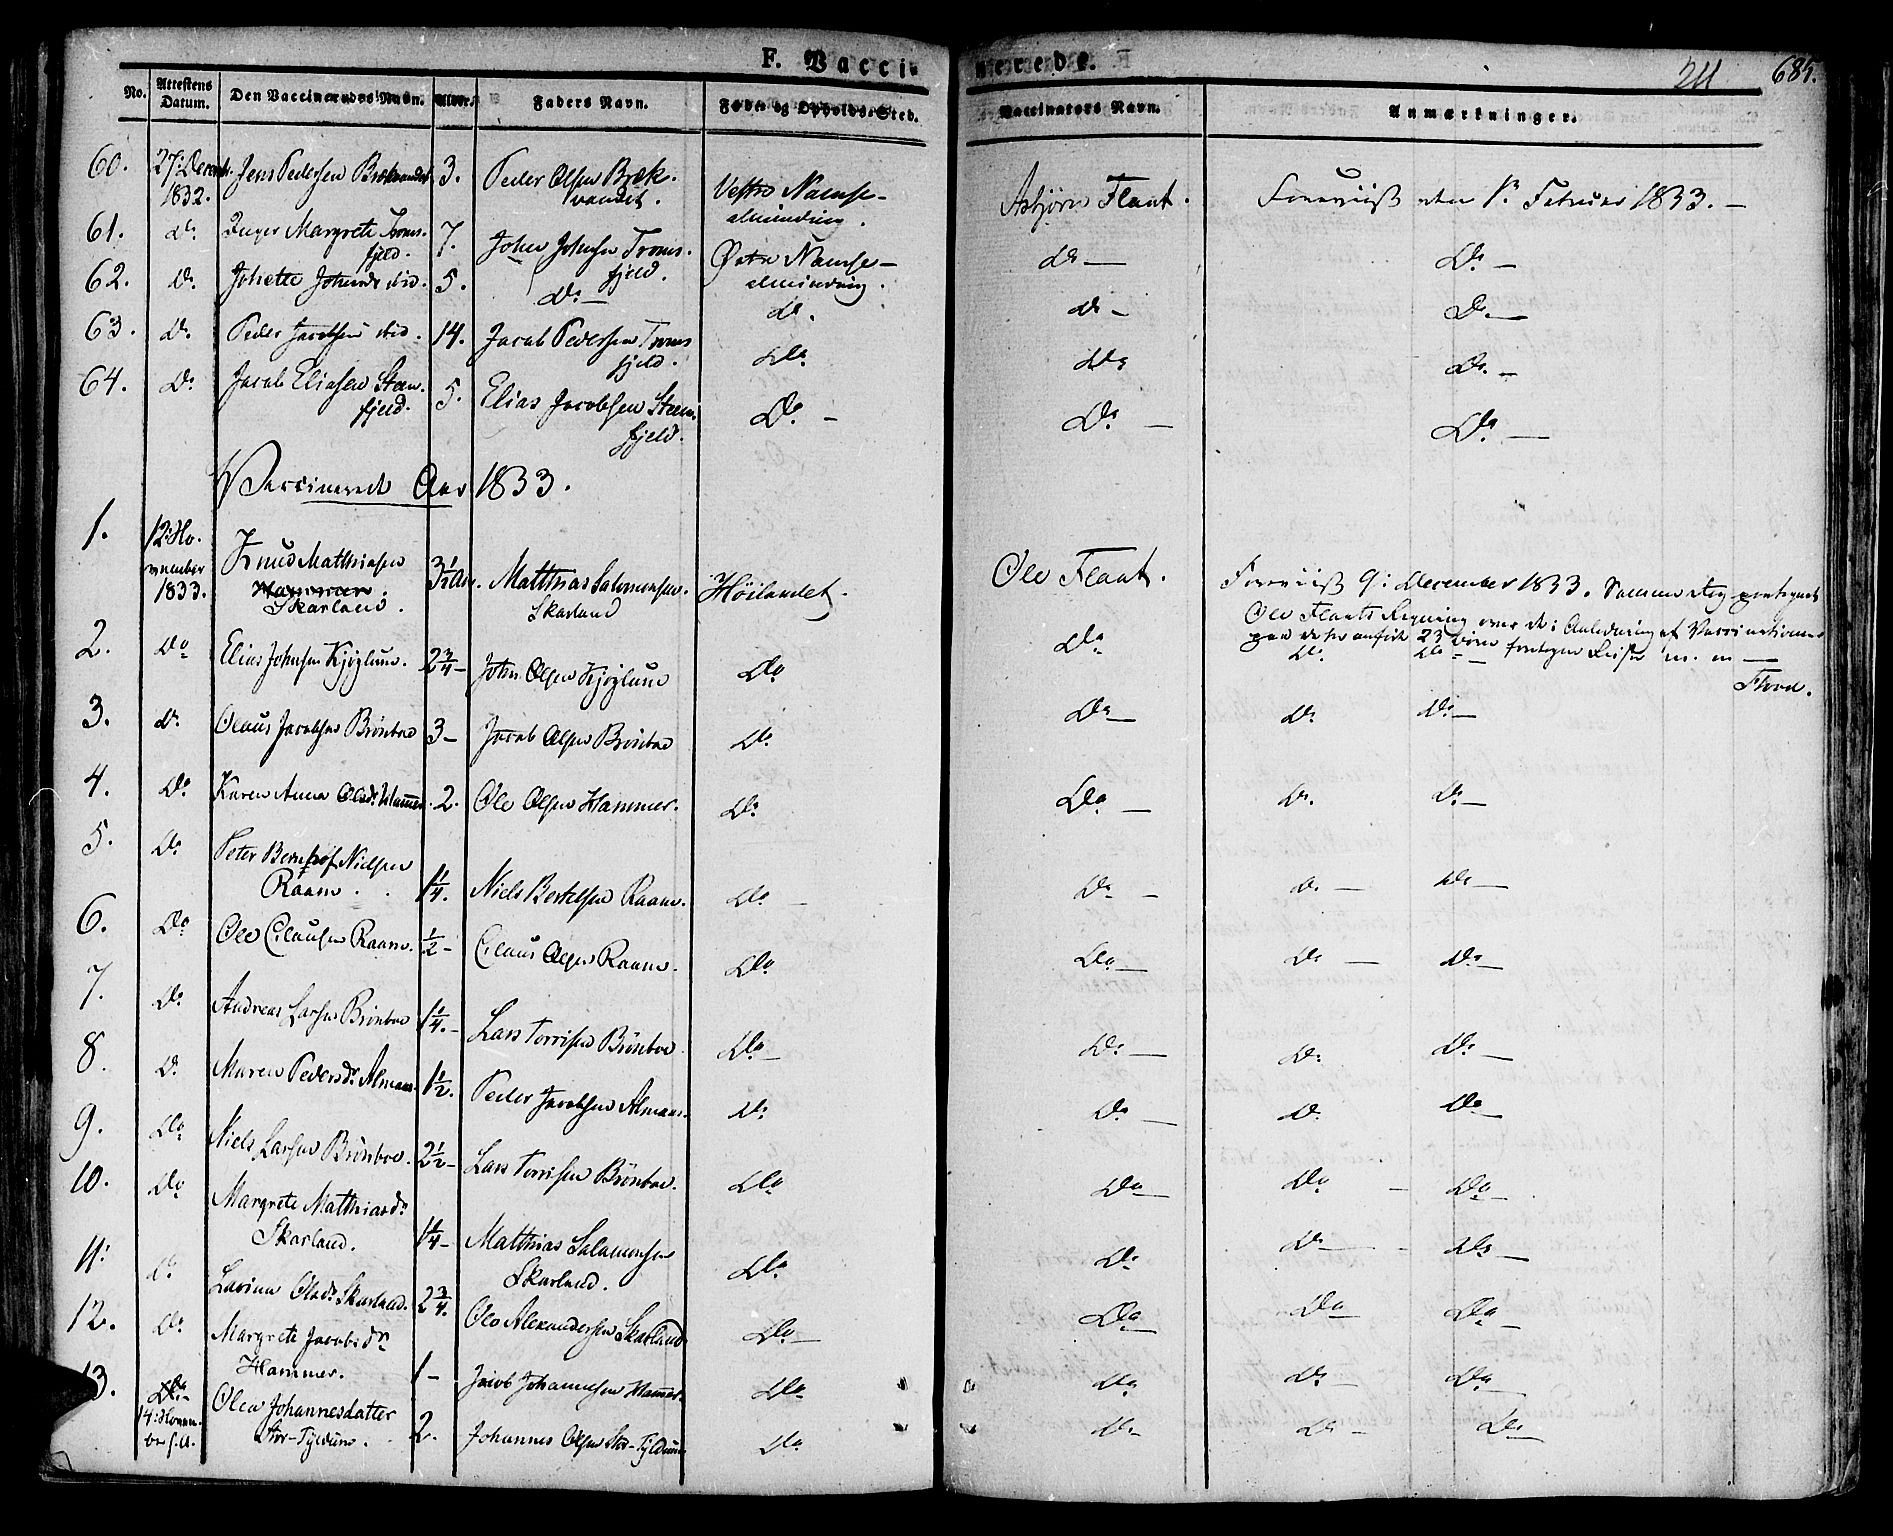 F. Vaccinerede.
211 685.
No. Attestens Datum. Den Vaccineredes Navn. Alder. Faders Navn. Føde og Opholds-Sted. Vaccinators Navn. Anmærkninger.
60. 27: Decemb. 1832. Jens Pedersen Brækvandet 3. Peder Olsen Bræk- vandet. Vestre Namse- alminding. Asbjørn Flaat. Foreviist den 1. Februar 1833. —
61. do Inger Margrete Troms- fjeld. 7. Johan Johnsen Troms- fjeld. Østre Namse- alminding. do — Do —
62. do Johette Johnsdr ibid. 5. do — do. do — Do —
63. do Peder Jacobsen ibid. 14. Jacob Pedersen Troms fjeld. do do Do. —
64. Do Jacob Eliasen Steen- fjeld. 5. Elias Jacobsen Steen- fjeld. Do — Do — Do —
Vaccinerede Aar 1833.
1. 12: No- vember 1833. Knud Mathiasen
Hammer.
Skarland. 3½ Aar. Matthias Salomonsen Skarland Høilandet. Ole Flaat. Foreviist 9: December 1833. Samme Dag
Ole Flaats Regning over de i Anledning af Vaccinationen
paa de her anførte 23 Børn foretagne Reiser m. m —
2. Do Elias Johnsen Kjøglum. 2¾ — John Olsen Kjøglum Do Do Do Do —
3. do Olaus Jacobsen Brønboe 3 — Jacob Olsen Brønboe Do Do — Do Do —
4. Do Karen Anna Olsdr Hammer. 2. Ole Olsen Hammer. Do Do — Do. Do —
5. Do Peter Nielsen Raam. 1¼. Niels Bertelsen Raam. Do Do — Do — Do —
6. Do Ole Clausen Raam. ½ — Claus Olsen Raam. Do Do — Do — Do —
7. Do Andreas Larsen Brønboe 1¼. — Lars Torrisen Brønboe Do — Do — Do Do —
8. Do Maren Pedersdr Almaas. 1½. Peder Jacobsen Almaas. Do Do — Do Do —
9. Do Niels Larsen Brønboe. 2½ — Lars Torrisen Brønboe. Do Do — Do — Do —
10. Do Margrete Matthiasdr Skarland. 1¼ — Matthias Salamonsen Skarland. Do Do Do — Do —
11: do Larina Olsdr Skarland. 2¾. Ole Alexandersen Skarland Do — Do — Do — Do —
12. Do Margrete Jacobsdr Hammer. 1 — Jacob Johannesen Hammer. Do Do Do — Do —
13. Do 14: Novem- ber f.A. Olea Johannesdatter Stor-Tyldum. 2. Johannes Olsen Stor-Tyldum Do Do Do Do —